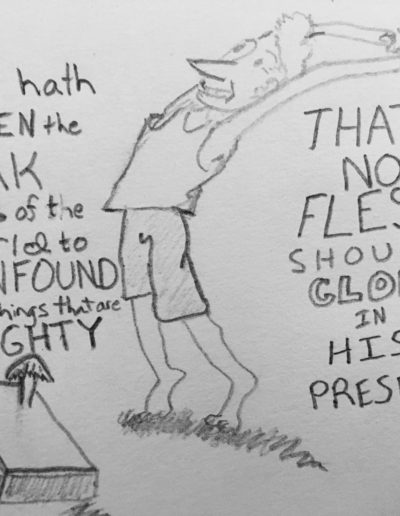 hath
EN the
AK
s of the
rld to
NFOUND
hings that are
GHTY
THAT
NO
FLES
SHOU
GLO
IN
HIS
PRES